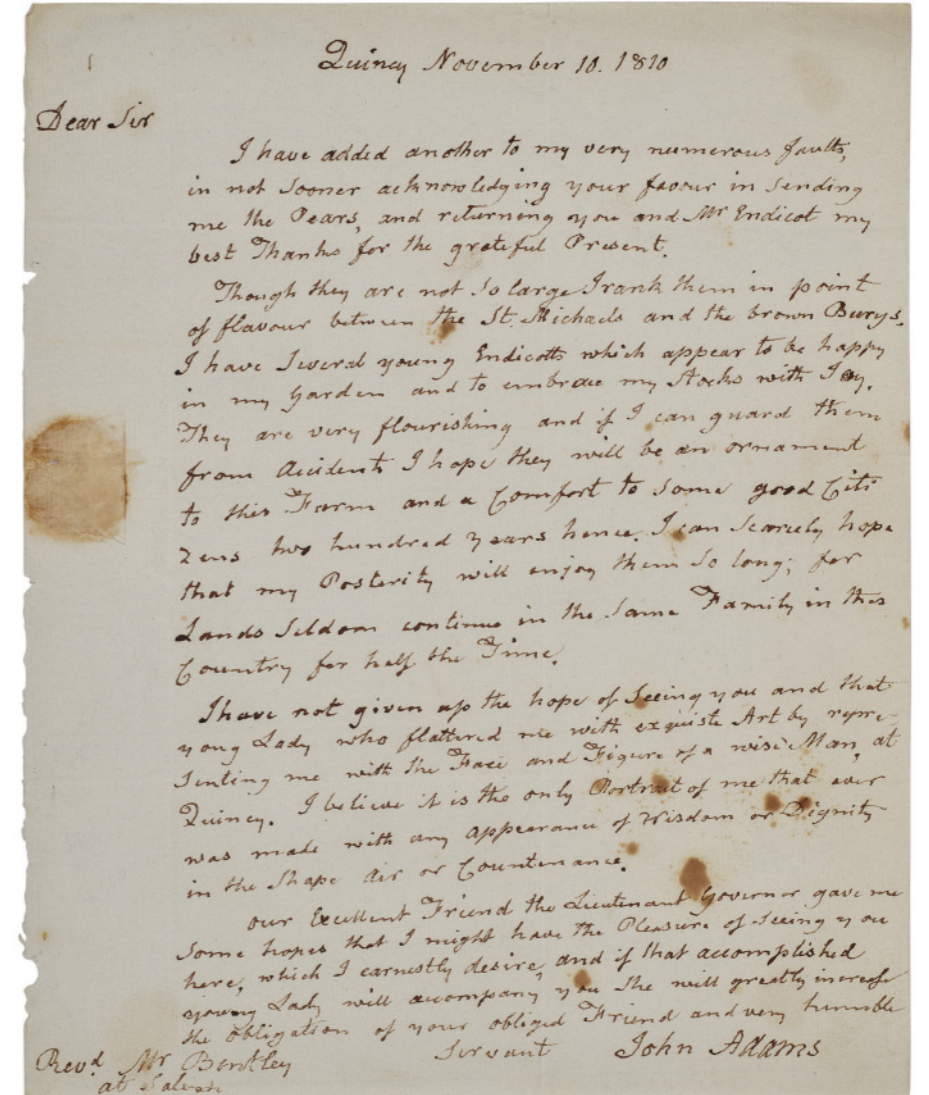 Quincy November 10. 1810
Dear Sir
I have added another to my very numerous faults,
in not sooner acknowledging your favour in sending
me the Pears, and returning you and Mr Endicot my
best Thanks for the grateful Present.
Though they are not so large I rank them in point
of flavour between the St. Michaels and the brown Burys.
I have Several young Endicotts which appear to be happy
in my Garden and to embrace my Stocks with Joy.
They are very flourishing and if I can guard them
from Accidents I hope they will be an ornament
to this Farm and a Comfort to some good Citi
zens two hundred years hence. I can scarcely hope
that my Posterity will enjoy them so long; for
Lands seldom continue in the same Family in this
Country for half the Time.
I have not given up the hope of Seeing you and that
young Lady who flattered me with exquiste Art by repre-
senting me with the Face and Figure of a wise Man, at
Quincy. I believe it is the only Portrait of me that ever
was made with any appearance of Wisdom or Dignity
in the Shape Air or Countenance.
our Excellent Friend the Lieutenant Governor gave me
Some hopes that I might have the Pleasure of Seeing you
here, which I earnestly desire, and if that accomplished
young Lady will accompany you She will greatly increase
the obligation of your obliged Friend and very humble
Servant John Adams
Revd. Mr Bentley
at Salem